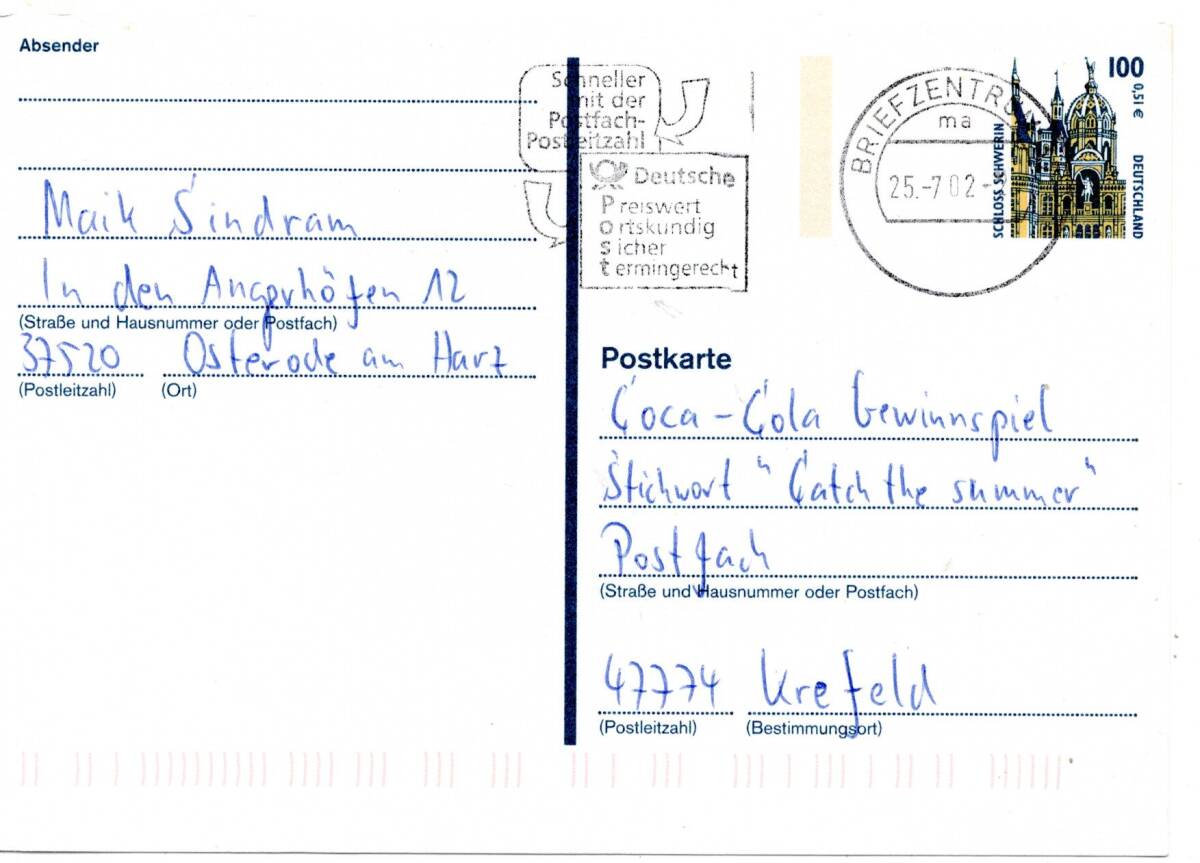 Absender
Maik Sindram
In den Angerhöfen 12
(Straße und Hausnummer oder Postfach)
37520 Osterode am Harz
(Postleitzahl) (Ort)
Schneller
mit der
Postfach-
Postleitzahl
Deutsche
Preiswert
Ortskundig
Sicher
termingerecht
BRIEFZENTRUM
ma
25.-7.02.-
100
0,51 €
SCHLOSS SCHWERIN
DEUTSCHLAND
Postkarte
Coca-Cola Gewinnspiel
Stichwort "Catch the summer"
Postfach
(Straße und Hausnummer oder Postfach)
47774 Krefeld
(Postleitzahl) (Bestimmungsort)